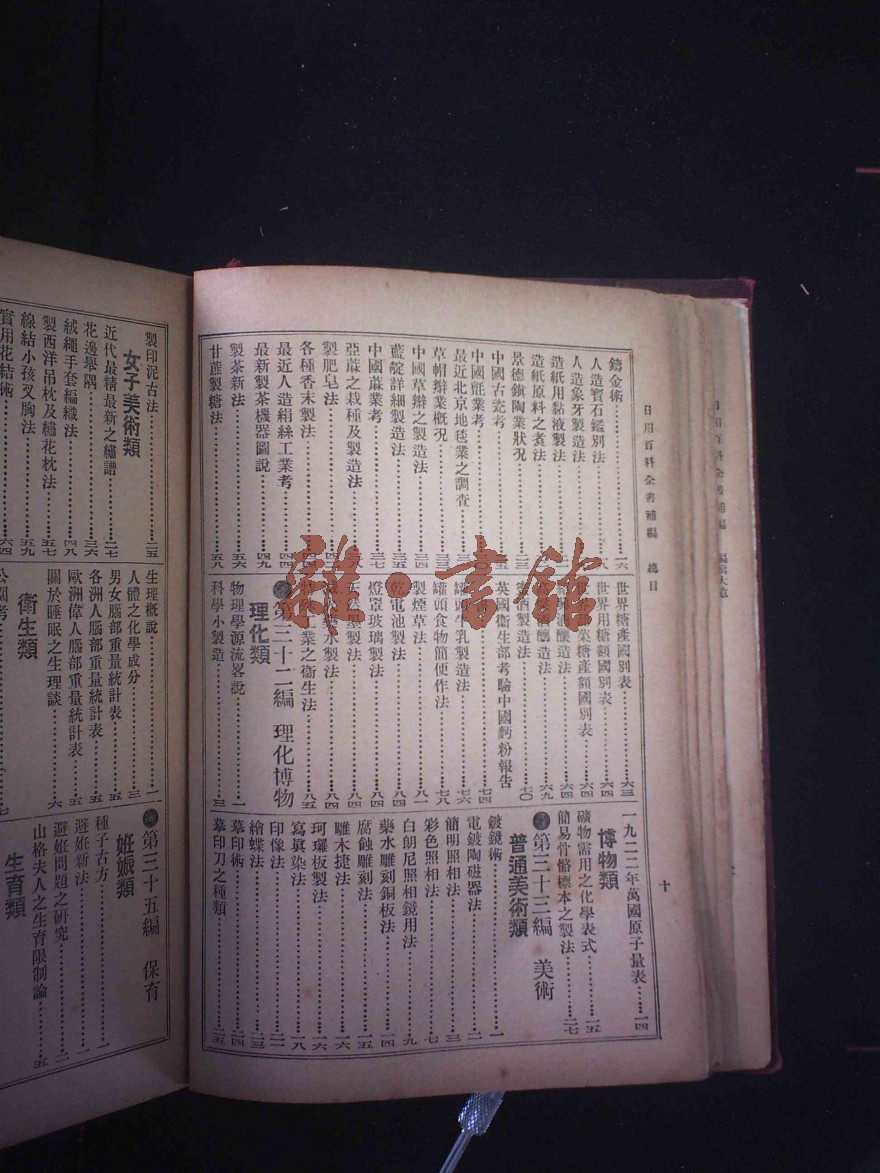 日用百科全書補編 總目
十
鑄金術
人造寶石鑑別法
人造象牙製造法
造紙用黏液製法
造紙原料之煮法
景德鎮陶業狀况
中國古瓷考
中國氈業考
最近北京地毯業之調查
草帽辮業概况
中國草辮之製造法
藍靛詳細製造法
中國蔴業考
亞蔴之栽種及製造法
製肥皂法
各種香末製法
最近人造絹絲工業考
最新製茶機器圖說
製茶新法 五六
甘蔗製糖法 五八
世界糖產國別表 六三
世界用糖額國別表 六四
糖產額國別表 六四
釀造法 六四
釀造法 六九
酒製造法 七〇
英國衞生部考驗中國麪粉報告 七四
罐頭牛乳製造法 七六
罐頭食物簡便作法 七八
製煙草法 八一
乾電池製法 八四
燈罩玻璃製法 八四
製法 八四
水製法 八四
工業之衞生法 八五
第三十二編 理化博物
理化類
物理學源流畧說 一
科學小製造 三
一九二二年萬國原子量表 一四
博物類
礦物需用之化學表式 一五
簡易骨骼標本之製法 二七
第三十三編 美術
普通美術類
鍍鏡術 一
電鍍陶磁器法 二
簡明照相法 三
彩色照相法 七
白朗尼照相鏡用法 九
藥水雕刻銅板法 一四
腐蝕雕刻法 一五
雕木捷法 一六
珂羅板製法 一六
寫眞染法 一八
印像法 二一
繪蝶法 二三
摹印術 二四
摹印刀之種類 二五
製印泥古法 二五
女子美術類
近代最精最新之繡譜 二七
花邊舉隅 三六
絨繩手套編織法 四八
製西洋吊枕及繡花枕法 五四
線結小孩叉胸法 五九
實用花結術 六四
生理概說 一
人體之化學成分
男女腦部重量統計表 五
各洲人腦部重量統計表 五
歐洲偉人腦部重量統計表 五
關於睡眠之生理談 六
衞生類
第三十五編 保育
姙娠類
種子古方 一
避姙新法 一
避姙問題之研究 二
山格夫人之生育限制論 五
生育類
雜·書館